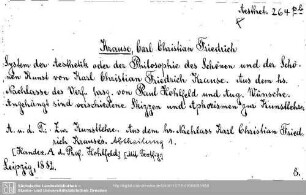 Aesthet. 264 pb
Krause, Carl Christian Friedrich
System der Aesthetik oder der Philosophie des Schönen und der Schö-
nen Kunst von Karl Christian Friedrich Krause. Aus dem hs.
Nachlasse des Verf. hrsg. von Paul Hohlfeld und Aug. Wünsche.
Angehängt sind verschiedene Skizzen und Aphorismen zur Kunstlehre.
A. u. d. Ti. Zur Kunstlehre. Aus dem hs. Nachlass Karl Christian Fried-
rich Krause's. Abtheilung 1.
[Handex. A. d. Prof. Hohlfeld]
Leipzig, 1882.
Sächsische Landesbibliothek -
Staats- und Universitätsbibliothek Dresden